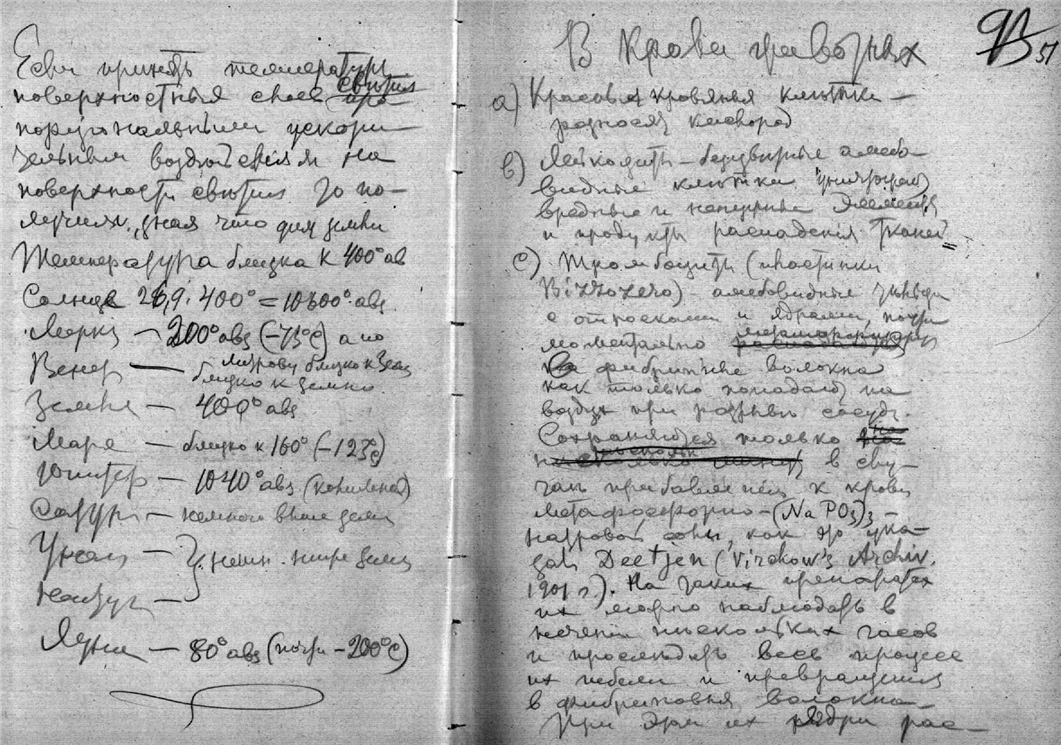 Если принять температуру
поверхностныя слоев светил про-
порціональными ускори-
тельным воздѣйствіям на
поверхности светил то по-
лучим, зная что для земли
Температура близка к 400° аб
Солнце 26,9·400° = 10600° абз
Мерку — 200° абз (-73°C)
Венер — близко к земле
Земля — 400° абз
Марс — близко к 160° (-123°C)
Юпитер — 1040° абз
Сатурн — немного выше земли
Уран — ниже земли
Нептун —
Луна — 80° абз (почти -200°C)
В Крови
95
51
a) Красныя кровяныя клѣтки —
разносят кислород
в) Лейкоциты — безцвѣтные амебо-
видные клѣтки
вредные и элементы
и продукты распаденія тканей
с) Тромбоциты (пластинки
Bizzozero) — амебовидные
с отростками и ядрами, почти
моментально
на фибринные волокна
как только попадают на
воздух при разрыве сосуд.
Сохраняются только
в слу-
чаѣ прибавленія к крови
метафосфорно — (NaPO3)3 —
натровой соли, как это ука-
зал Deetjen (Virchow's Archiv.
1901 г.). На таких препаратах
их можно наблюдать в
теченіи нѣскольких часов
и прослѣдить весь процесс
их гибели и превращения
в фибриновыя волокна —
При этом их ядра рас-